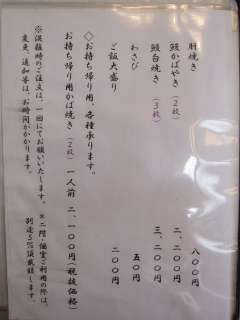 肝焼き 八〇〇円
鰻かばやき（2枚） 二、二〇〇円
鰻白焼き（3枚） 三、二〇〇円
わさび 五〇円
ご飯大盛り 二〇〇円
◇お持ち帰り用、各種承ります。
お持ち帰り用かば焼き（2枚）一人前 二、一〇〇円（税抜価格）
※混雑時のご注文は、一回にてお願いいたします。※二階・個室ご利用の際は、
変更、追加等は、お時間がかかります。 別途5%頂戴致します。